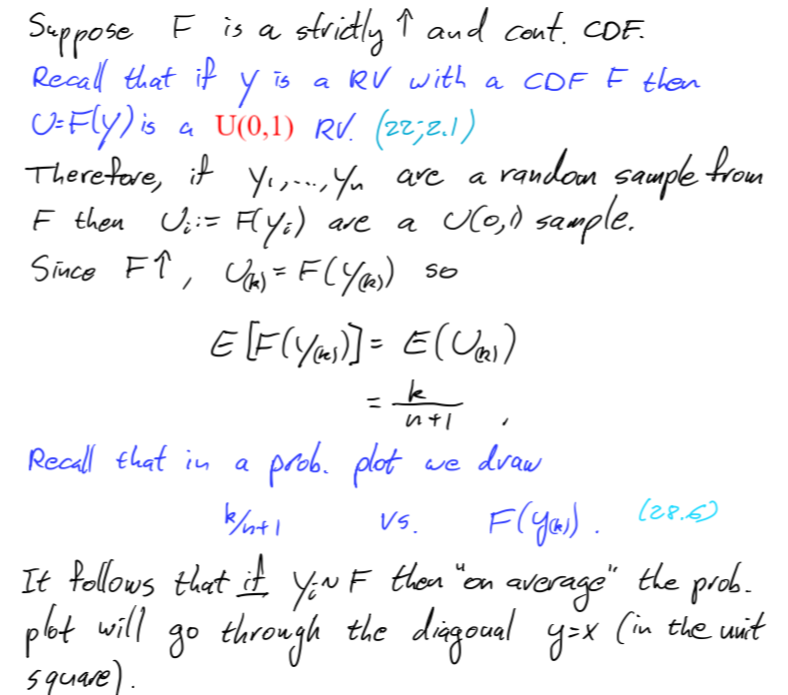 Suppose F is a strictly ↑ and cont. CDF.
Recall that if Y is a RV with a CDF F then
U=F(Y) is a U(0,1) RV. (22;2.1)
Therefore, if Y₁,...,Yₙ are a random sample from
F then Uᵢ:= F(Yᵢ) are a U(0,1) sample.
Since F↑, U₍ₖ₎ = F(Y₍ₖ₎) so
E[F(Y₍ₖ₎)] = E(U₍ₖ₎)
= k/(n+1),
Recall that in a prob. plot we draw
k/n+1 vs. F(y₍ₖ₎). (28.6)
It follows that if Yᵢ~F then "on average" the prob.
plot will go through the diagonal y=x (in the unit
square).